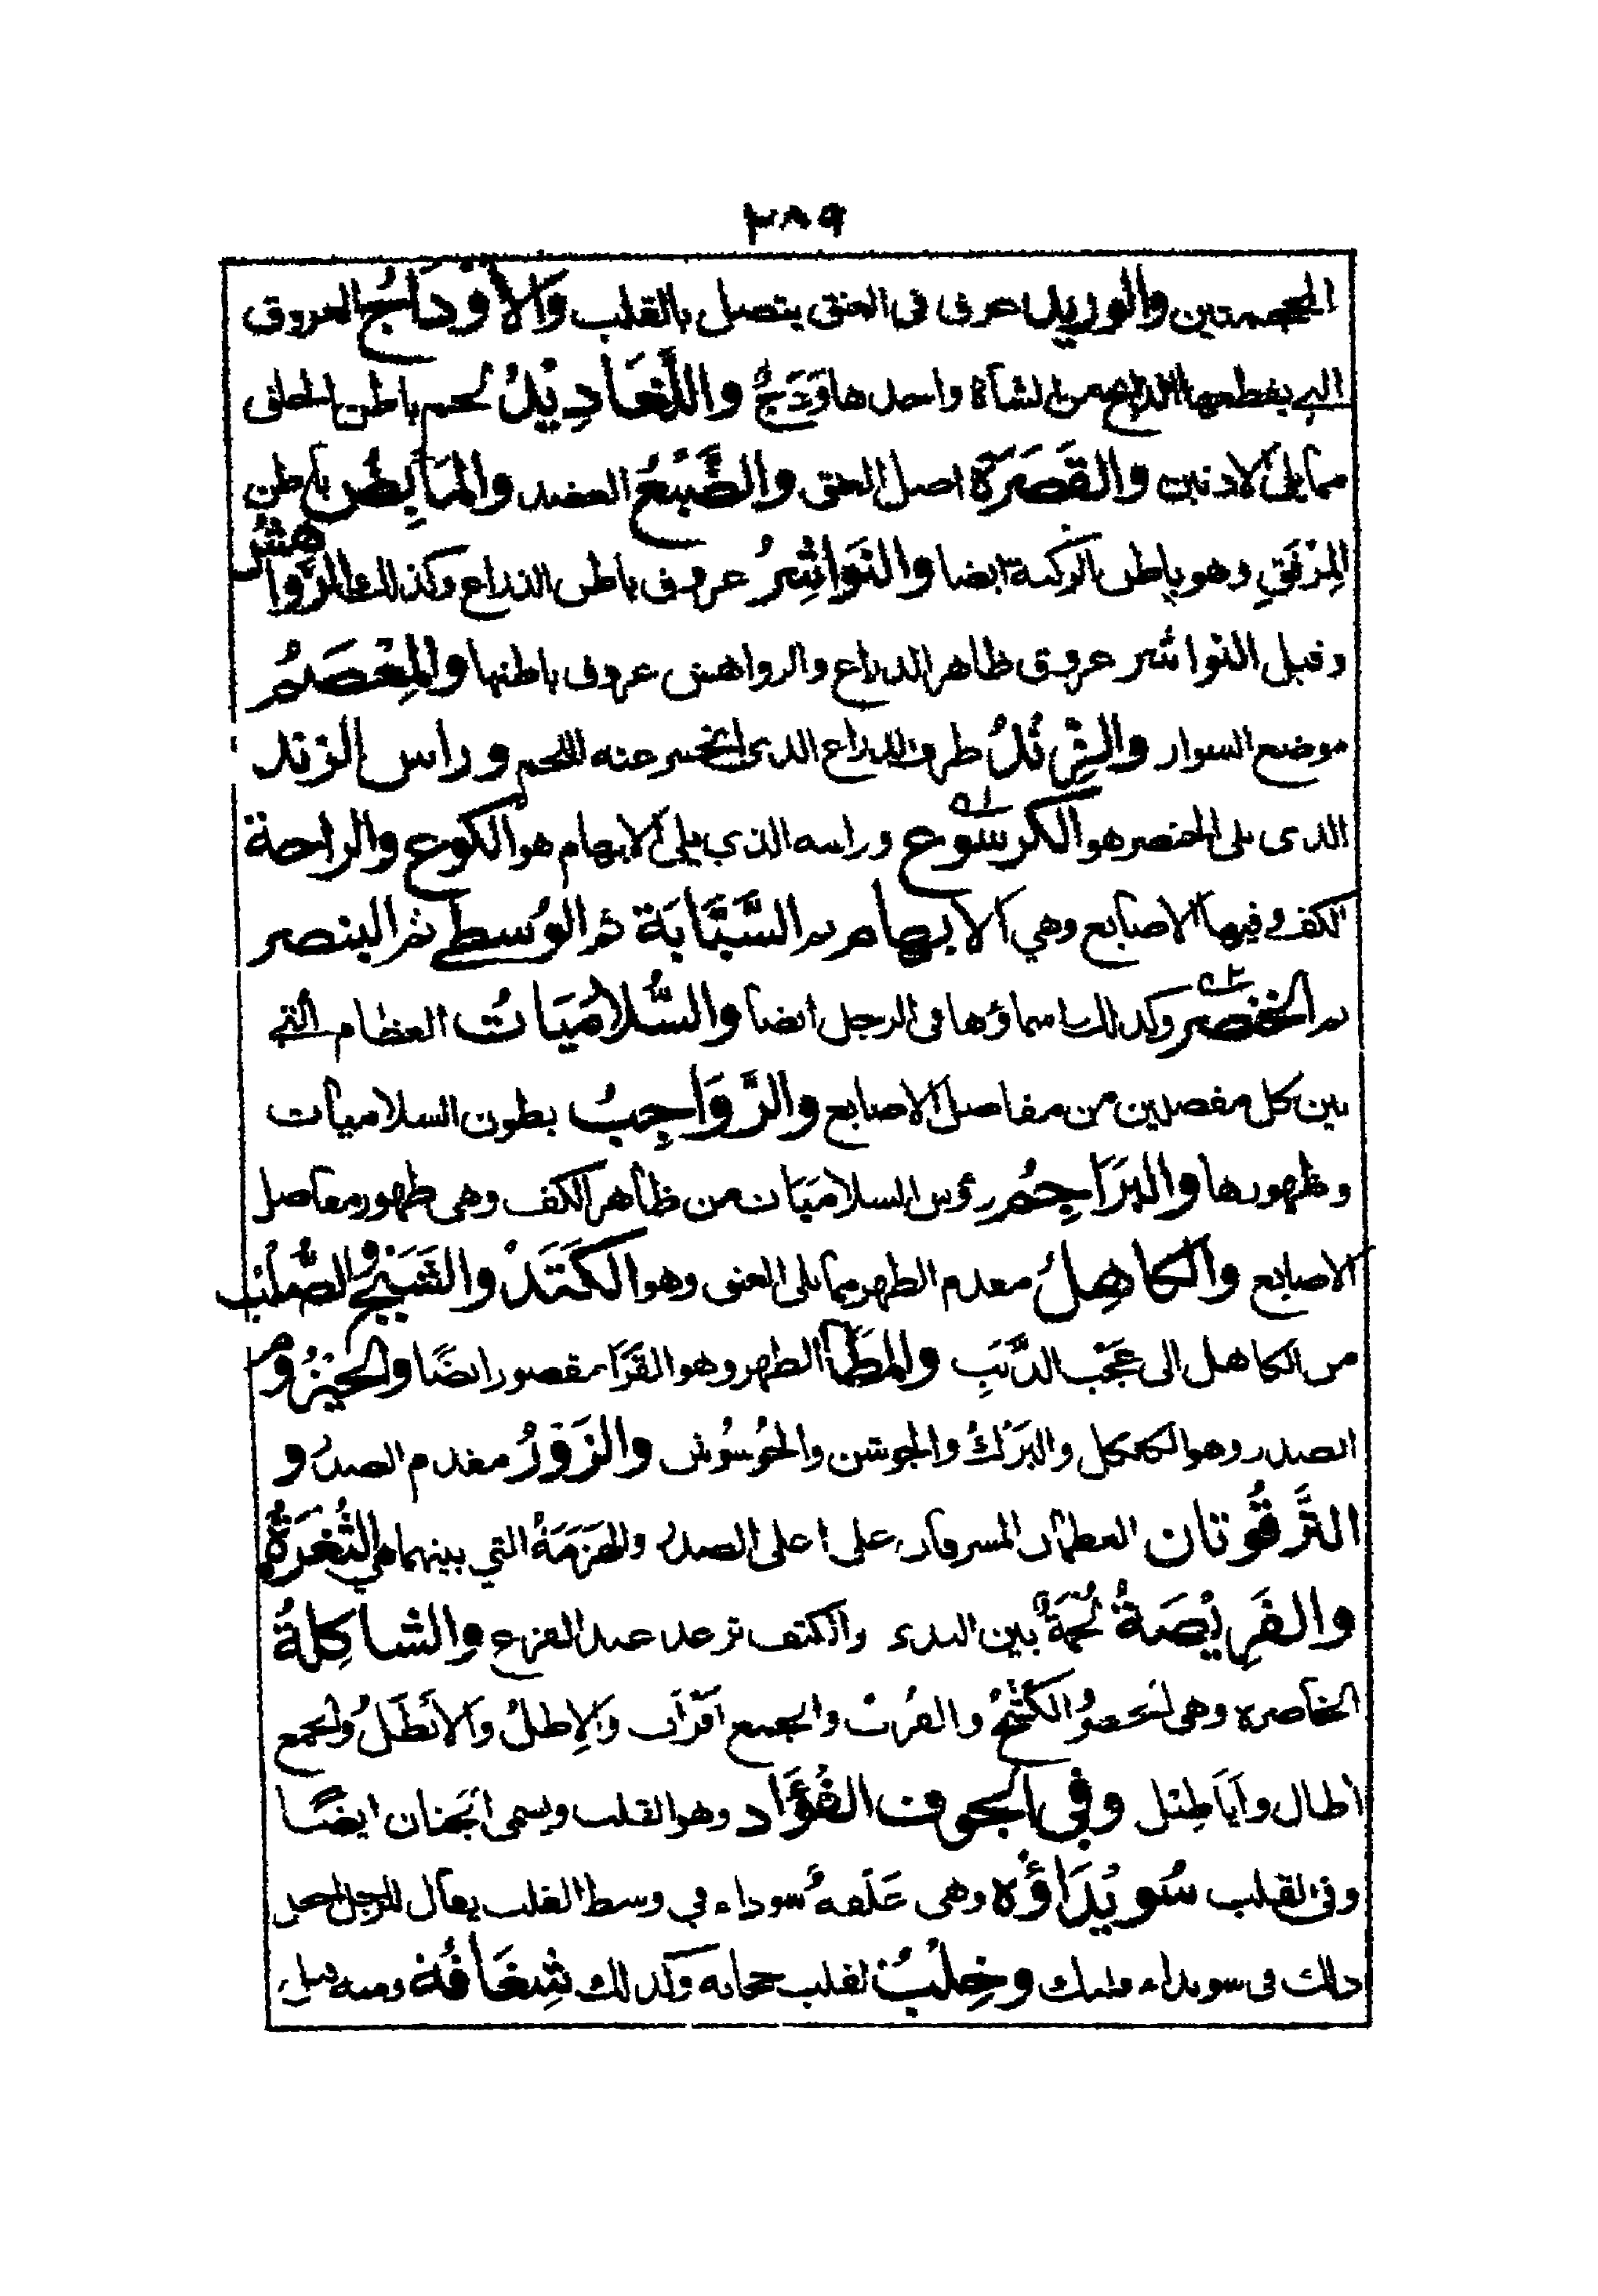 ٢٨٩
المحجمتين والوريد عرق فى العنق يتصل بالقلب وَالأوْدَاجُ العروق
التي يقطعها الذابح من الشاة واحدها وَدَجٌ واللَّغَادِيْدُ لحم باطن الحلق
مما يلى الاذنين والقَصَرَة اصل العنق والضَّبْعُ العضد والمَابِضُ باطن
المِرْفَقِ وهو باطن الركبة ايضا والنَوَاشِرُ عروق باطن الذراع وكذلك الرَّواهِشُ
وقيل النواشر عروق ظاهر الذراع والرواهش عروق باطنها والمِعْصَمُ
موضع السوار والزَنْدُ طرف الذراع الذى انحسر عنه اللحم وراس الزند
الذى يلى الخنصر هو الكرسُوع وراسه الذي يلى الابهام هو الكوع والراحة
الكف وفيها الاصابع وهي الابهام ثم السَّبَّابَة ثم الوُسطى ثم البنصر
ثم الخنصر وكذلك اسماؤها فى الرجل ايضا والسُّلامَيَاتُ العظام التي
بين كل مفصلين من مفاصل الاصابع والرَّوَاجِبُ بطون السلاميات
وظهورها والبَرَاجِمُ رؤس السلامَيَات من ظاهر الكف وهى ظهور مفاصل
الاصابع والكاهِلُ مقدم الظهر مما يلى العنق وهو الكَتَدُ والثَبَجُ والصُّلْبُ
من الكاهل الى عَجْب الذَّنَبِ والمَطَا الظهر وهو القَرَا مقصور ايضًا والحَيْزُوم
الصدر وهو الكلكل والبَرْكُ والجوشن والجُوشُوش والزَوْرُ مقدم الصدر و
التَّرقُوتان العظمان المشرفان على اعلى الصدر والهَزَمَةُ التي بينهما هي الثُغرَةُ
والفَرِيْصَةُ لُحْمَةٌ بين الثدى والكتف ترعد عند الفزع والشاكِلةُ
الخاصره وهى الحَصْو الكَشْحُ والقُربْ والجمع اقْرَاب والاِطلُ والأيْطَلُ والجمع
اطال وايَاطِل وفى الجوف الفُؤَاد وهو القلب ويسمى الجَنان ايضًا
وفى القلب سُوَيْدَاؤُه وهى عَلَقةٌ سوداء في وسط القلب يقال للرجل اجعل
ذلك فى سويداء قلبك وخِلْبُ القلب حجابه وكذلك شِغَافُه ومنه قيل